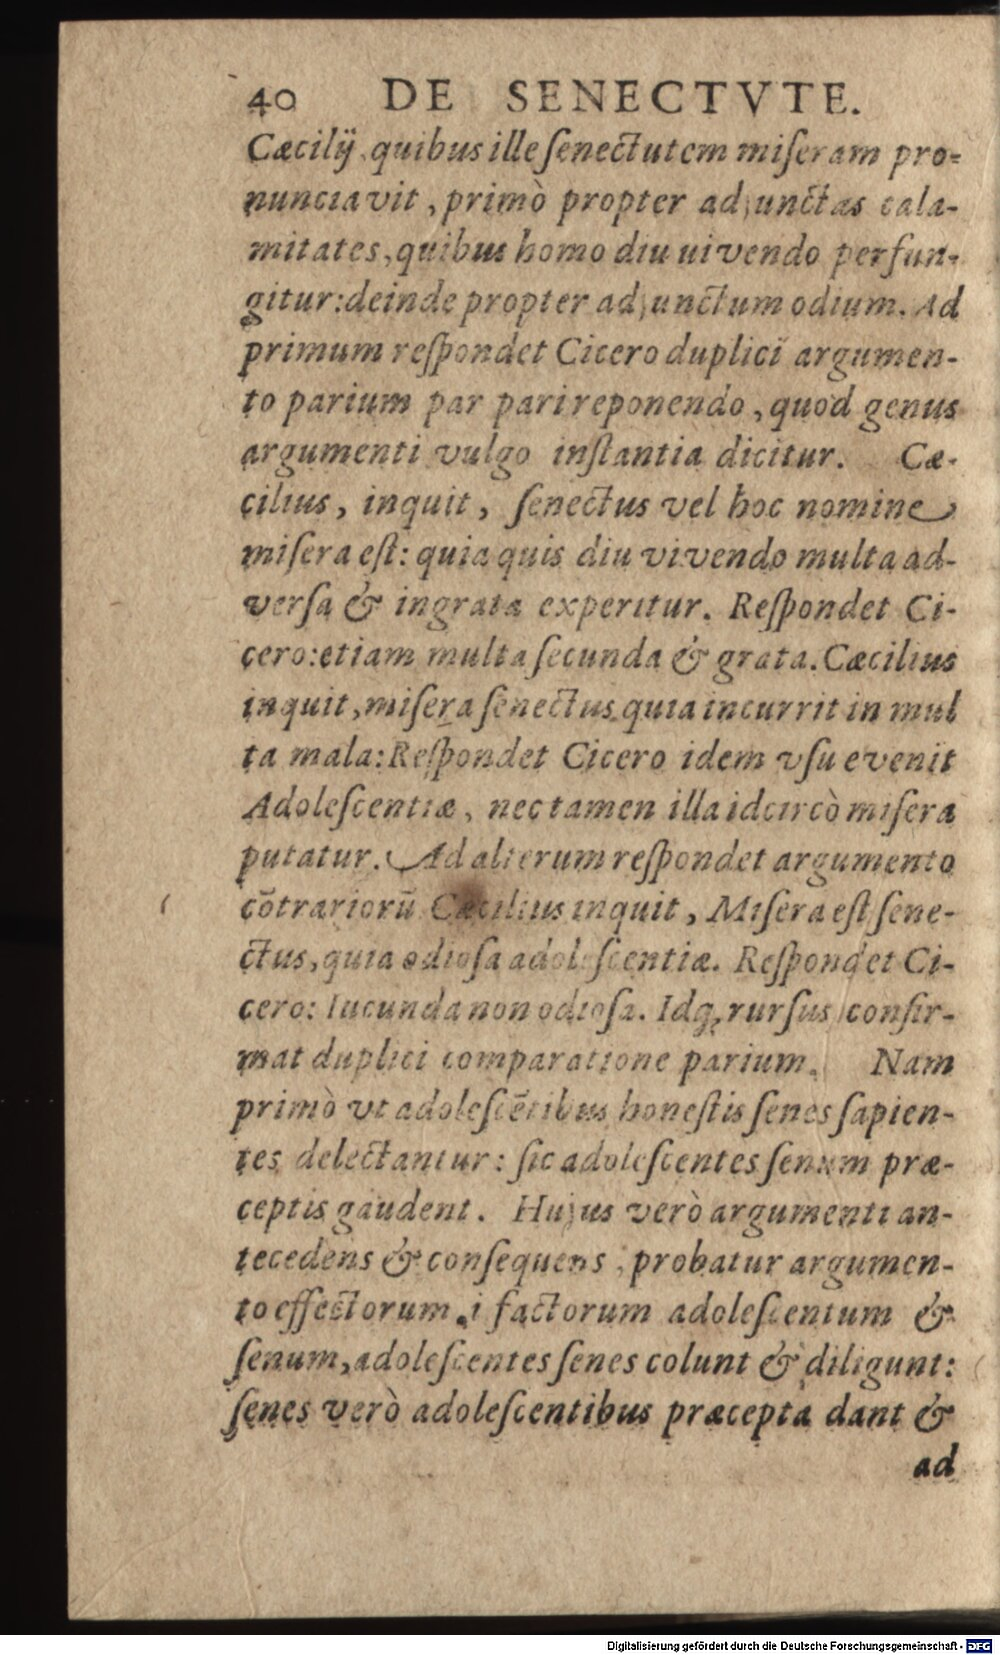 40 DE SENECTVTE.
Cæcilij quibus ille ſenectutem miſeram pro-
nunciavit, primò propter adjunctas cala-
mitates, quibus homo diu uivendo perfun-
gitur: deinde propter adjunctum odium. Ad
primum reſpondet Cicero duplici argumen-
to parium par pari reponendo, quod genus
argumenti vulgo inſtantia dicitur. Cæ-
cilius, inquit, ſenectus vel hoc nomine
miſera eſt: quia quis diu vivendo multa ad-
verſa & ingrata experitur. Reſpondet Ci-
cero: etiam multa ſecunda & grata. Cæcilius
inquit, miſera ſenectus quia incurrit in mul
ta mala: Reſpondet Cicero idem vſu evenit
Adoleſcentiæ, nec tamen illa idcircò miſera
putatur. Ad alterum reſpondet argumento
cõtrariorũ Cæcilius inquit, Miſera eſt ſene-
ctus, quia odioſa adoleſcentiæ. Reſpondet Ci-
cero: Iucunda non odioſa. Idq; rurſus confir-
mat duplici comparatione parium. Nam
primò vt adoleſcẽtibus honeſtis ſenes ſapien-
tes delectantur: ſic adoleſcentes ſenum præ-
ceptis gaudent. Hujus verò argumenti an-
tecedens & conſequens, probatur argumen-
to effectorum, i factorum adoleſcentum &
ſenum, adoleſcentes ſenes colunt & diligunt:
ſenes verò adoleſcentibus præcepta dant &
ad
Digitalisierung gefördert durch die Deutsche Forschungsgemeinschaft - DFG